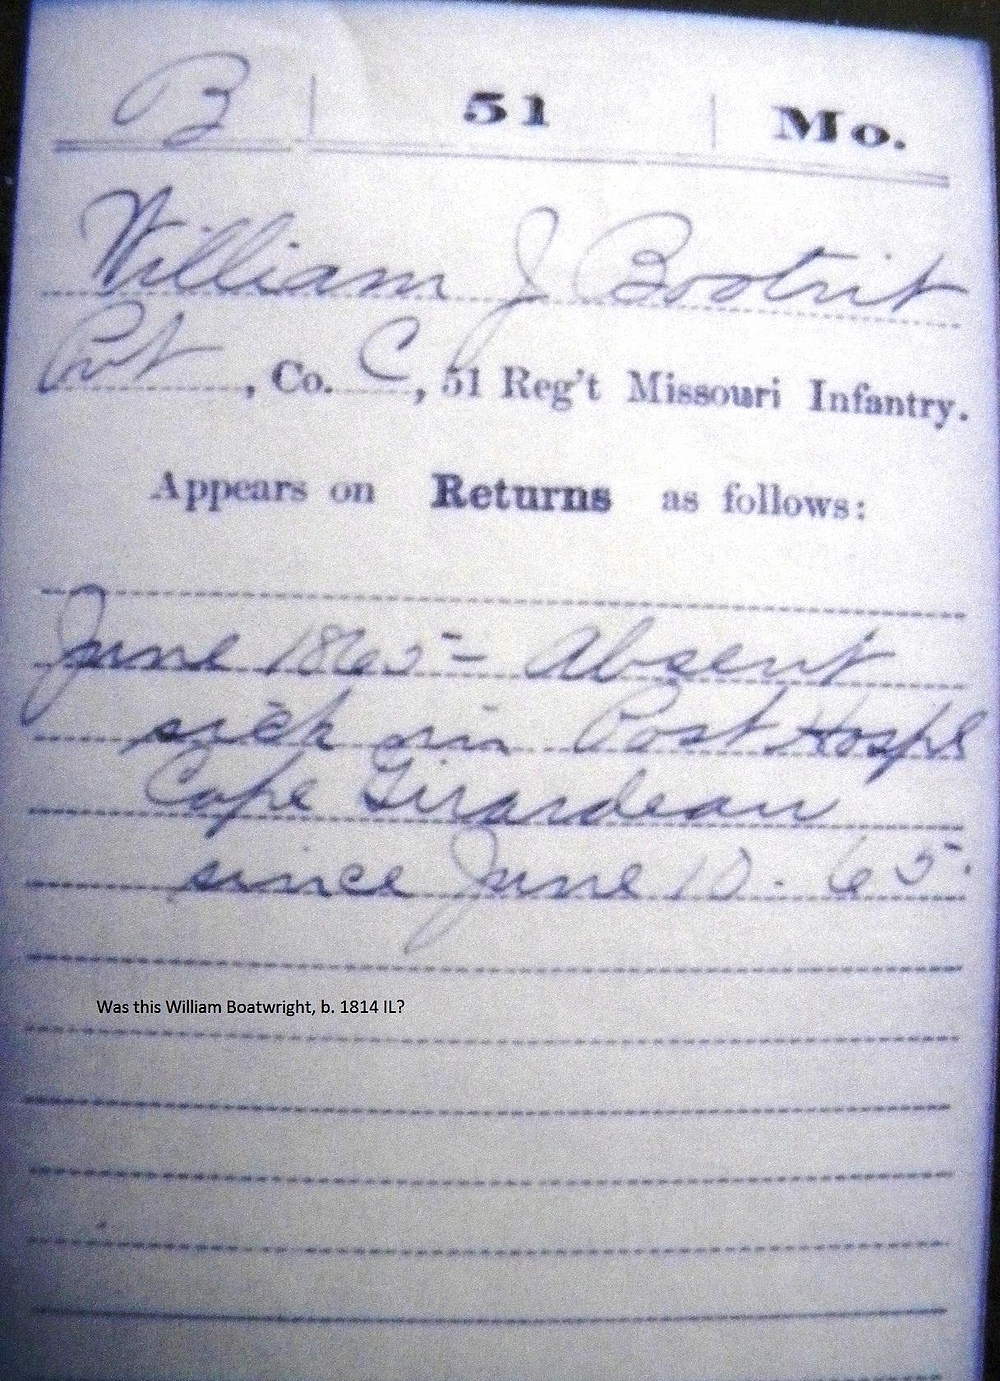 B 51 Mo.
William J Bootrit
Pvt, Co. C, 51 Reg't Missouri Infantry.
Appears on Returns as follows:
June 1865 - Absent
sick in Post Hospl
Cape Girardeau
since June 10. 65.
Was this William Boatwright, b. 1814 IL?